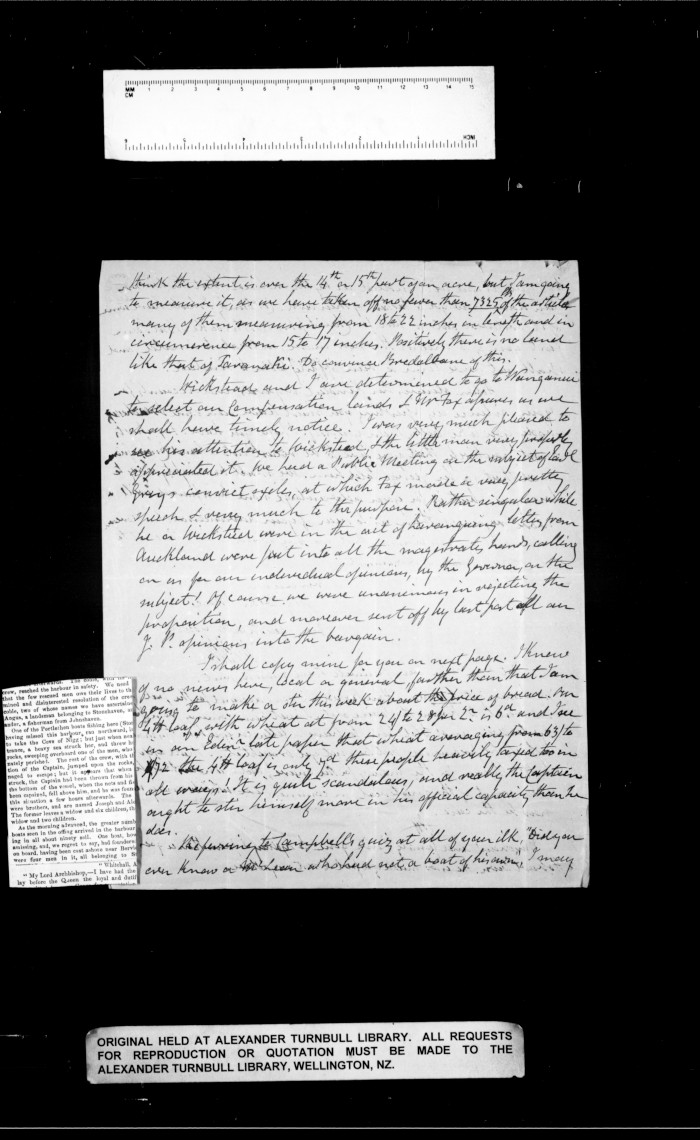 MM
CM
1 2 3 4 5 6 7 8 9 10 11 12 13 14 15
INCH
think the extent is over the 14th or 15th part of an acre, but I am going
to measure it, as we have taken off no fewer than 7325 of the article
many of them measuring from 18 to 22 inches in length and in
circumference from 15 to 17 inches. Positively there is no land
like that of Taranaki. Do convince Bredalbane of this.
Wicksteed and I are determined to go to Wanganui
to select our Compensation lands & Mr Fox assures us we
shall have timely notice. I was very much pleased to
see his attention to Wicksteed, & the little man very properly
appreciated it. We had a Public Meeting on the subject of Earl
Grey's convict exiles, at which Fox made a very pretty
speech & very much to the purpose. Rather singular while
he or Wicksteed were in the act of haranguing letters from
Auckland were put into all the magistrates hands, calling
on us for our individual opinions, by the Governor, on the
subject! Of course we were unanimous in rejecting the
proposition, and moreover sent off by last post all our
J. P. opinions into the bargain.
I shall copy mine for you on next page. I know
of no news here, local or general further than that I am
going to make a stir this week about the price of bread. Our
4 lb loaf, with wheat at from 24/ to 28 pr Qr is 6d and I see
in an Edinr late paper that wheat averaging from 63/ to
the 4 lb loaf is only these people heavily taxed too in
all ways! It is quite scandalous, and really the Captain
ought to stir himself more in his official capacity than he
does.
Campbell's quiz at all of your ilk "Did you
ever know a McLean who had not a boat of his own", I may
crew, reached the harbour in safety. We need
that the few rescued men owe their lives to th
mined and disinterested resolution of the crew
coble, two of whose names we have ascertaine
Angus, a landsman belonging to Stonehaven, a
ander, a fisherman from Johnshaven.
One of the Portlethen boats fishing here (Ston
having missed this harbour, ran northward, in
to take the Cove of Nigg; but just when
a heavy sea struck her, and threw h
rocks, sweeping overboard one of the men, who
nately perished. The rest of the crew, with
tion of the Captain, jumped upon the rocks,
naged to escape; but it appears that when
struck, the Captain had been thrown from his
the bottom of the vessel, when the mets and fis
been repulsed, fell above him, and he was found
this situation a few hours afterwards. The
were brothers, and are named Joseph and Ale
The former leaves a widow and six children, th
widow and two children.
As the morning advanced, the greater numb
boats seen in the offing arrived in the harbour
ing in all about ninety sail. One boat, how
amissing, and, we regret to say, had foundere
on board, having been cast ashore near
were four men in it, all belonging to S
"Whitehall, A
"My Lord Archbishop,—I have had the
lay before the Queen the loyal and dutif
ORIGINAL HELD AT ALEXANDER TURNBULL LIBRARY. ALL REQUESTS
FOR REPRODUCTION OR QUOTATION MUST BE MADE TO THE
ALEXANDER TURNBULL LIBRARY, WELLINGTON, NZ.